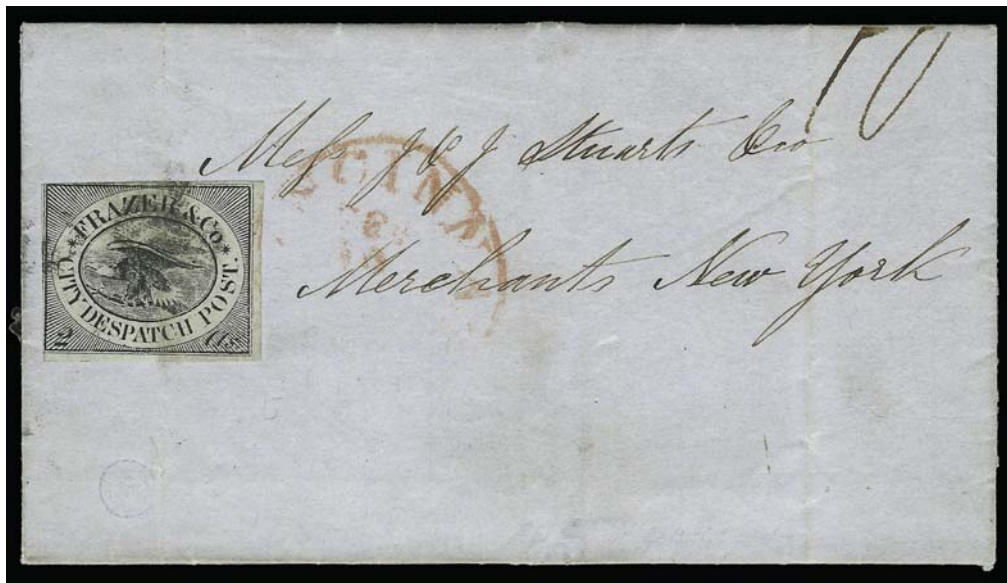 10
Mess J & J Stuarts & Co
Merchants New York
FRAZER & Co.
CITY DESPATCH POST.
2 Cts
NCINNA